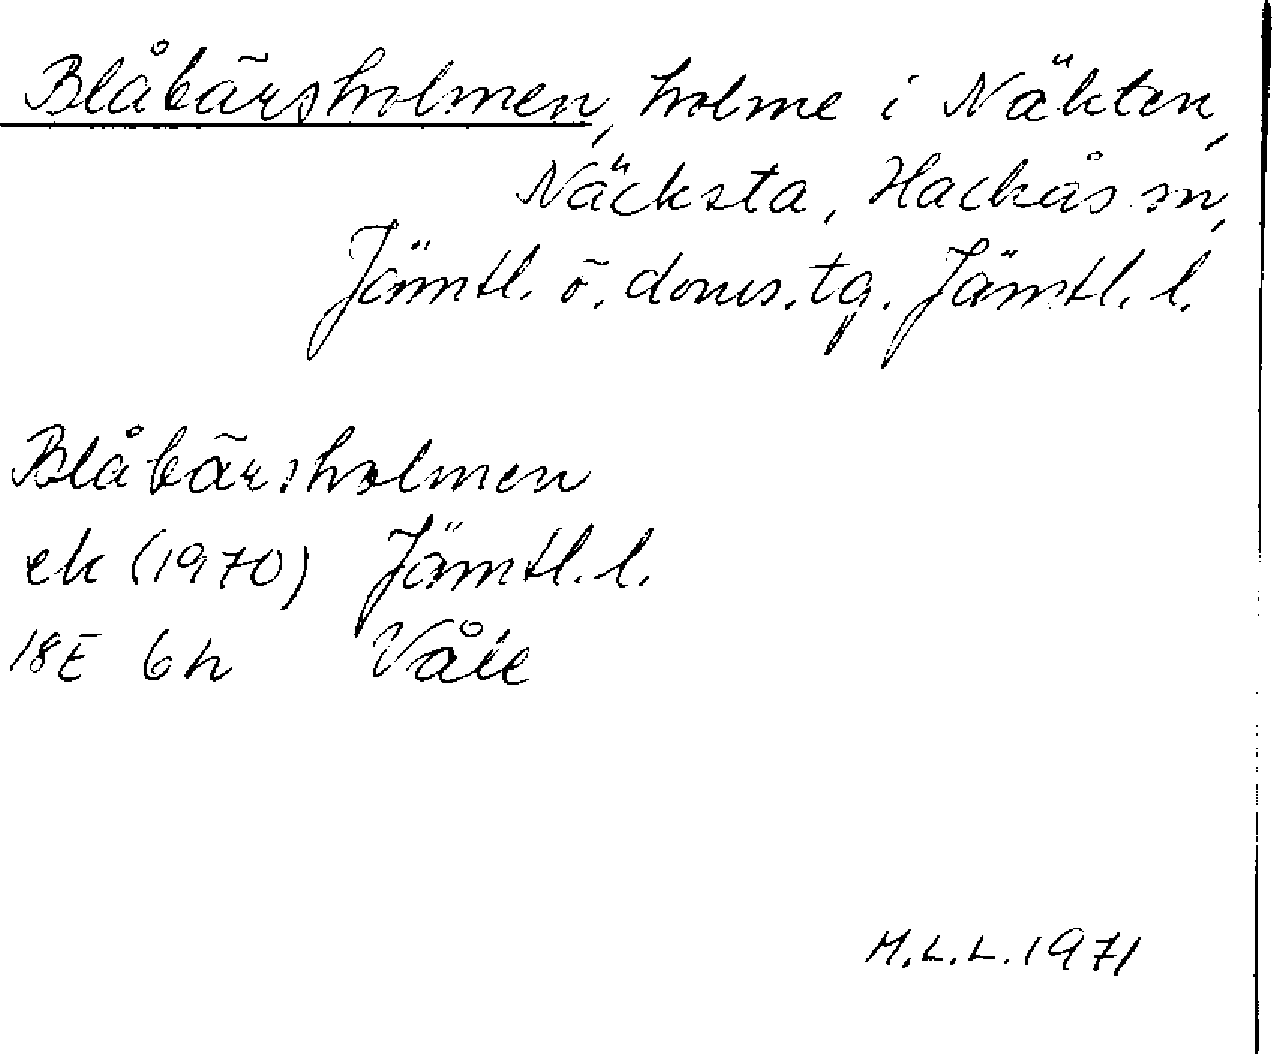 Blåbärsholmen, holme i Näkten,
Näcksta, Hackås sn,
Jämtl. ö. doms. tg. Jämtl. l.
Blåbärsholmen
ek (1970) Jämtl. l.
18E 6h Våle
M.L.L. 1971